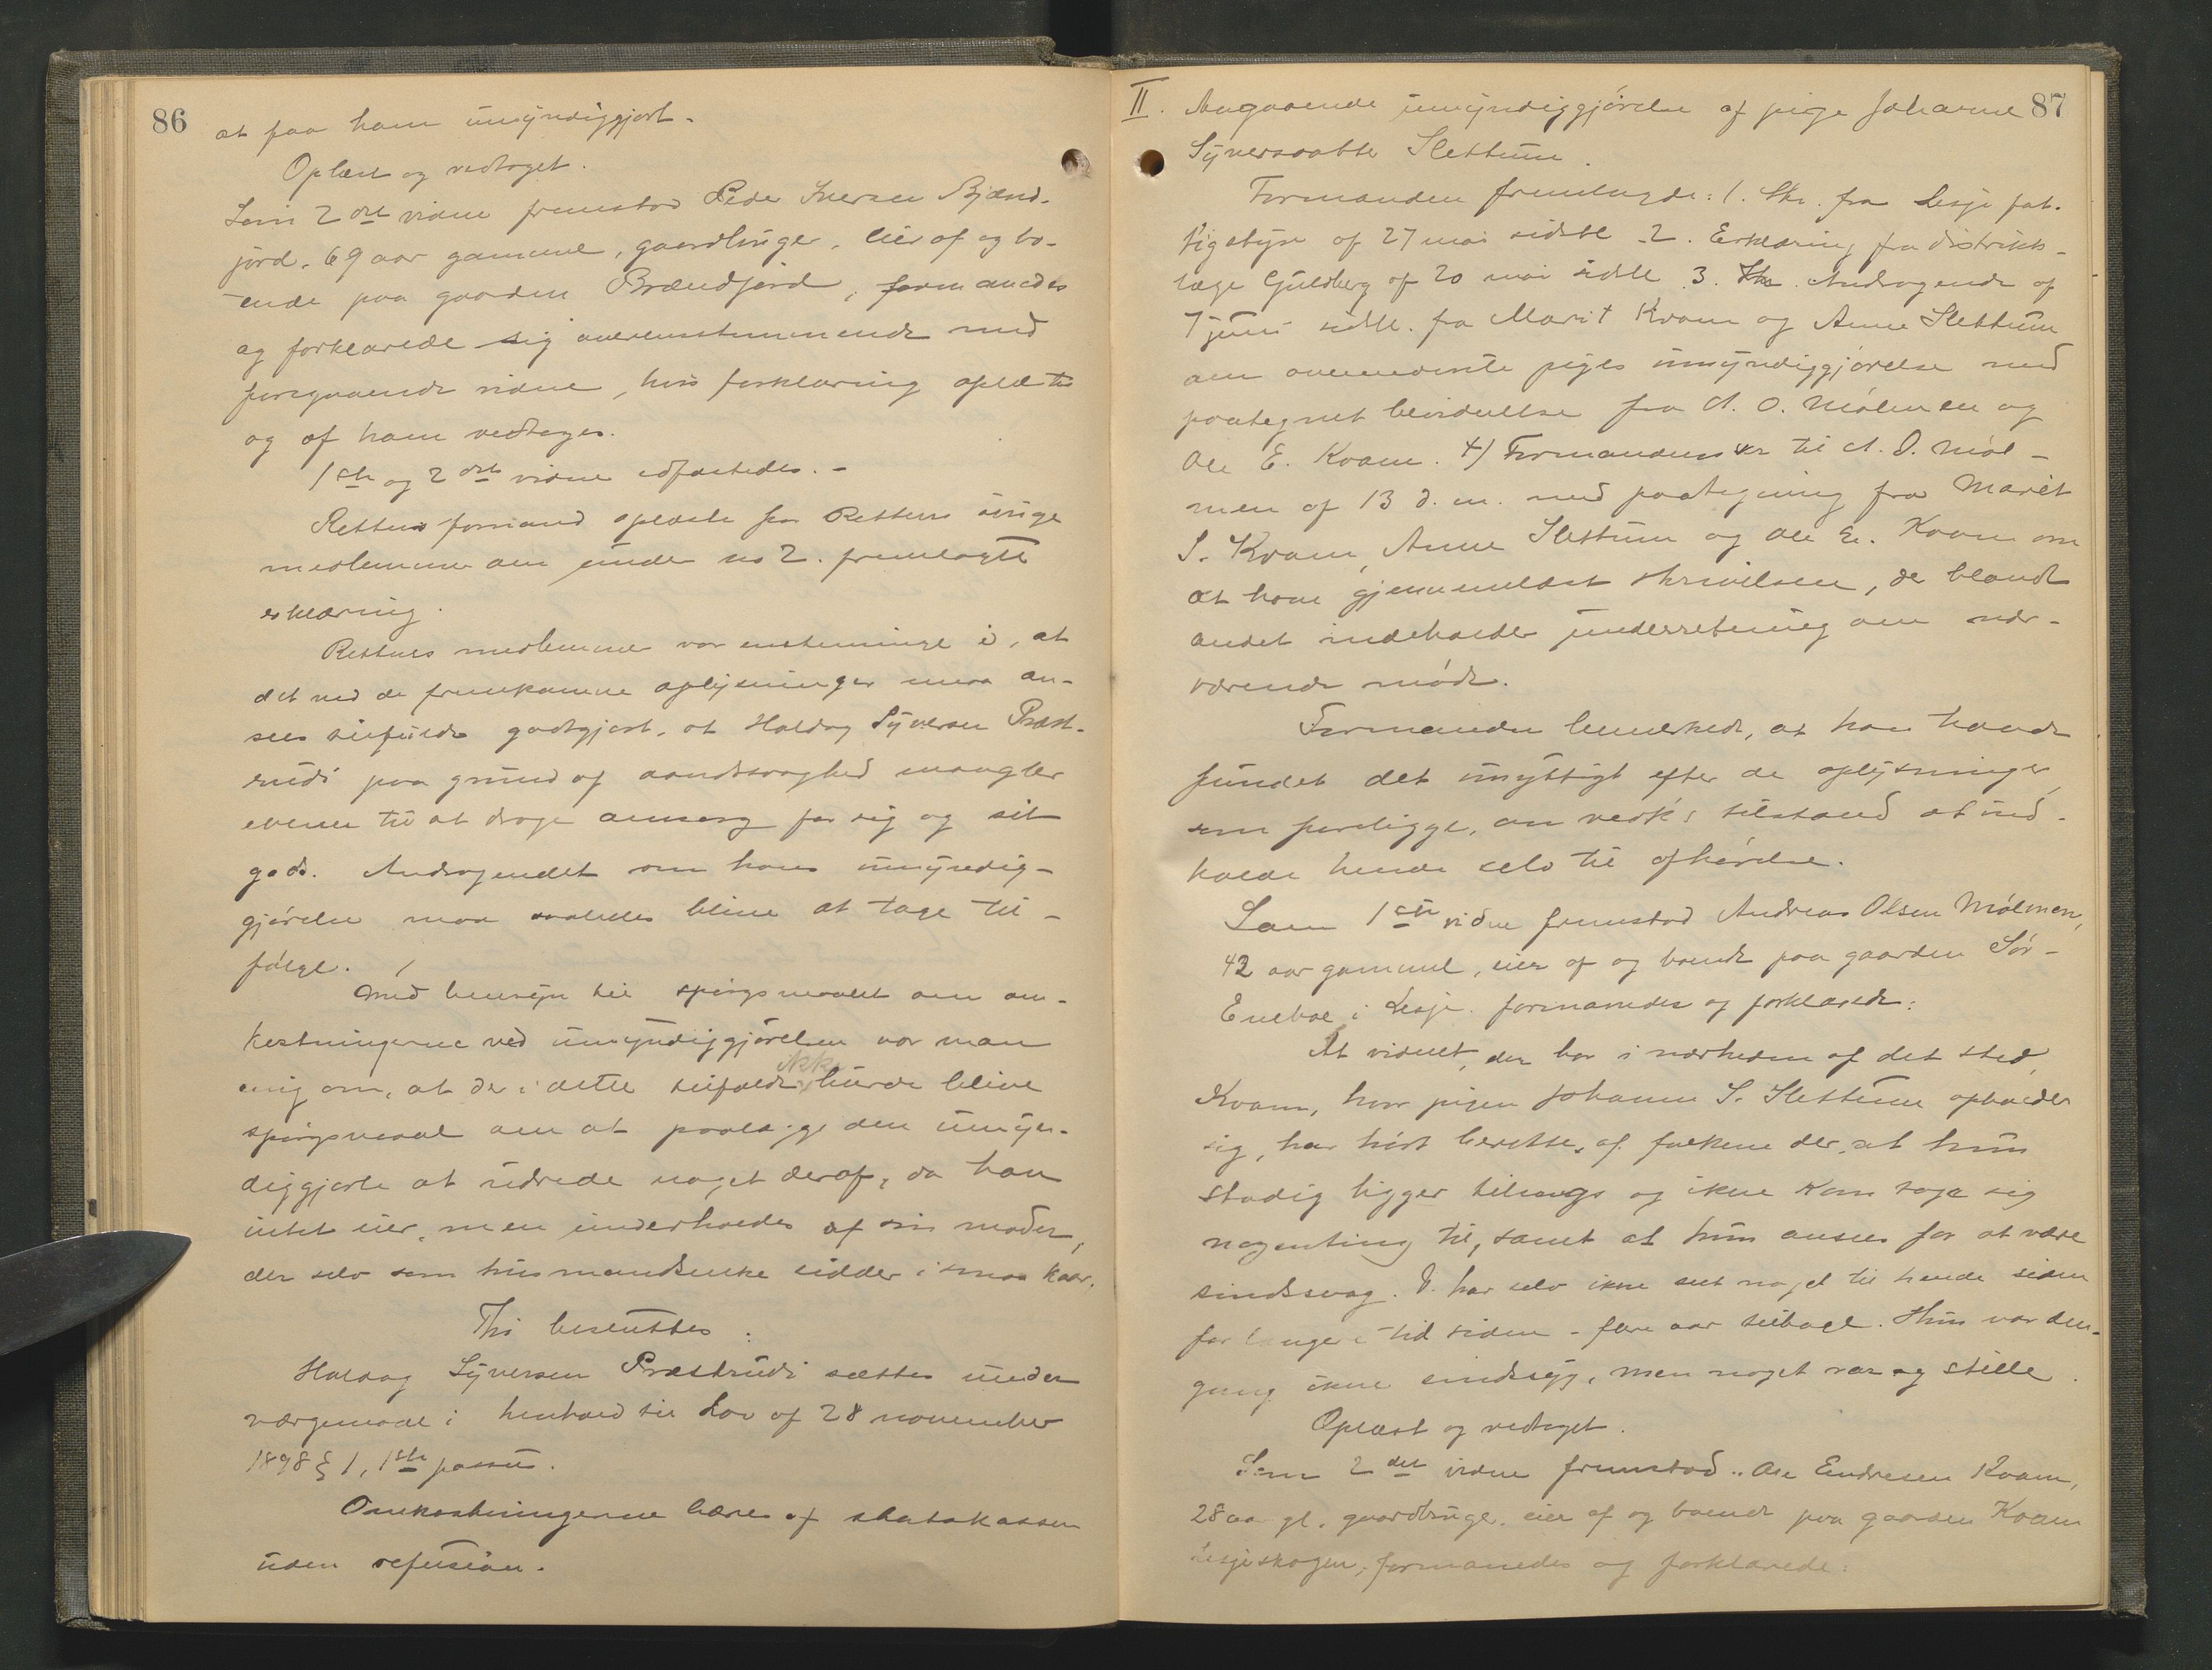 86
at faa ham umyndiggjort.
Oplæst og vedtaget.
Som 2det vidne fremstod Peder Iversen Bjænd-
jord, 69 aar gammel, gaardbruger, eier af og bo-
ende paa gaarden Brændjord, formanedes
og forklarede sig overensstemmende med
foregaaende vidne, hvis forklaring oplæstes
og af ham vedtages.
1ste og 2det vidne edfæstedes. -
Rettens formand oplæste for Rettens øvrige
medlemmer den under no 2. fremlagte
erklæring.
Rettens medlemmer var enstemmige i, at
det ved de fremkomne oplysninger maa an-
sees tilfulde godtgjort, at Haldog Syversen Præst-
rudi paa grund af aandssvaghed mangler
evnen til at drage omsorg for sig og sit
gods. Andragendet om hans umyndig-
gjørelse maa saaledes blive at tage til-
følge.
Med hensyn til spørgsmaalet om om-
kostningerne ved umyndiggjørelsen var man
enig om, at der i dette tilfælde ikke burde blive
spørgsmaal om at paalægge den umyn-
diggjorte at udrede noget deraf, da han
intet eier, men underholdes af sin moder,
der selv som husmandsenke sidder i smaa kaar.
Thi besluttes:
Haldog Syversen Præstrudi sættes under
værgemaal i henhold til Lov af 28 november
1898 § 1, 1ste passus.
Omkostningerne bæres af statskassen
uden refusion.
87
II. Angaaende umyndiggjørelse af pige Johanne
Syversdatter Slettum.
Formanden fremlagde: 1. Skr. fra Lesje fat-
tigstyre af 27 mai sidstl. 2. Erklæring fra distrikts-
læge Guldberg af 20 mai sidstl. 3. Andragende af
7 juni sidstl. fra Marit Kvam og Anne Slettum
om ovennævnte piges umyndiggjørelse med
paategnet bevidnelse fra A. O. Mølmen og
Ole E. Kvam. 4) Formandens skr til A. O. Møl-
men af 13 d. m. med paategning fra Marit
S. Kvam, Anne Slettum og Ole E. Kvam om
at have gjennemlæst skrivelsen, der blandt
andet indeholder underretning om nær-
værende møde.
Formanden bemerkede, at han havde
fundet det unyttigt efter de oplysninger,
som foreligger, om vedk's tilstand at ind-
kalde hende selv til afhørelse.
Som 1ste vidne fremstod Andreas Olsen Mølmen,
42 aar gammel, eier af og boende paa gaarden Sør-
Eneboe i Lesje. formanedes og forklarede:
At vidnet, der bor i nærheden af det sted,
Kvam, hvor pigen Johanne S. Slettum opholder
sig, har hørt berettes af folkene der, at hun
stadig ligger tilsengs og ikke kan tage sig
nogenting til, samt at hun ansees for at være
sindssvag. V. har selv ikke seet noget til hende siden
for længere tid siden - flere aar tilbage. Hun var den-
gang ikke sindssyg, men noget rar og stille.
Oplæst og vedtaget.
Som 2det vidne fremstod Ole Endresen Kvam,
28 aar gl. gaardbruger, eier af og boende paa gaarden Kvam
Lesjeskogen, formanedes og forklarede: